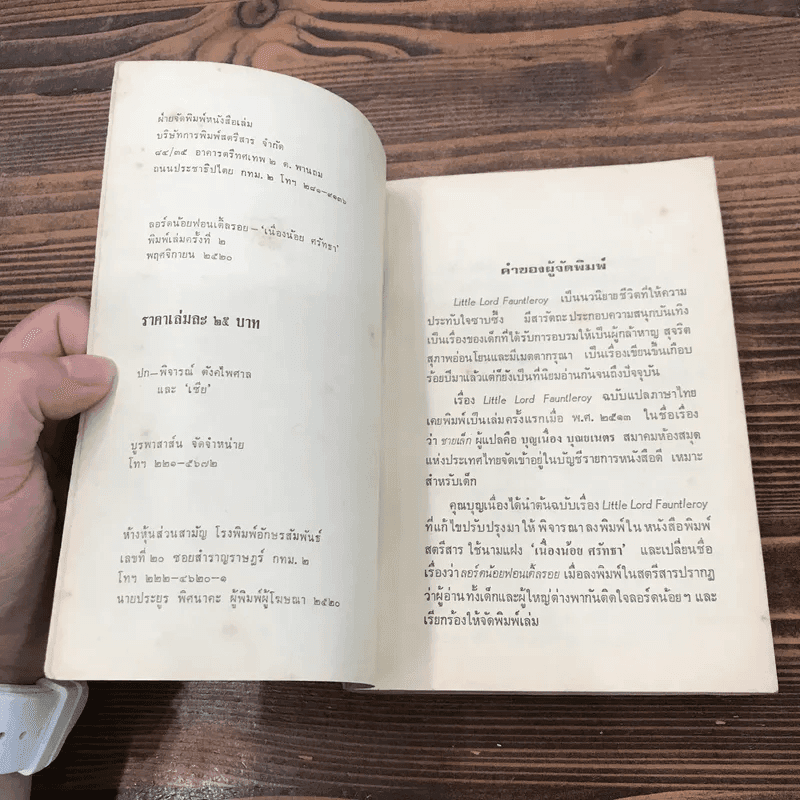 ฝ่ายจัดพิมพ์หนังสือเล่ม
บริษัทการพิมพ์สตรีสาร จำกัด
๘๔/๓๕ อาคารตรีทศเทพ ๒ ต. พานถม
ถนนประชาธิปไตย กทม. ๒ โทฯ ๒๘๑–๙๑๓๖
ลอร์ดน้อยฟอนเติ้ลรอย–'เนื่องน้อย ศรัทธา'
พิมพ์เล่มครั้งที่ ๒
พฤศจิกายน ๒๕๒๐
ราคาเล่มละ ๒๕ บาท
ปก–พิจารณ์ ตังคไพศาล
และ 'เซีย'
บูรพาสาส์น จัดจำหน่าย
โทฯ ๒๒๑–๕๖๗๒
ห้างหุ้นส่วนสามัญ โรงพิมพ์อักษรสัมพันธ์
เลขที่ ๒๐ ซอยสำราญราษฎร์ กทม. ๒
โทฯ ๒๒๒–๔๖๒๐–๑
นายประยูร พิศนาคะ ผู้พิมพ์ผู้โฆษณา ๒๕๒๐
คำของผู้จัดพิมพ์
Little Lord Fauntleroy เป็นนวนิยายชีวิตที่ให้ความ
ประทับใจซาบซึ้ง มีสารัตถะประกอบความสนุกบันเทิง
เป็นเรื่องของเด็กที่ได้รับการอบรมให้เป็นผู้กล้าหาญ สุจริต
สุภาพอ่อนโยนและมีเมตตากรุณา เป็นเรื่องเขียนขึ้นเกือบ
ร้อยปีมาแล้วแต่ก็ยังเป็นที่นิยมอ่านกันจนถึงปัจจุบัน
เรื่อง Little Lord Fauntleroy ฉบับแปลภาษาไทย
เคยพิมพ์เป็นเล่มครั้งแรกเมื่อ พ.ศ. ๒๕๑๓ ในชื่อเรื่อง
ว่า ชายเล็ก ผู้แปลคือ บุญเนื่อง บุณยเนตร สมาคมห้องสมุด
แห่งประเทศไทยจัดเข้าอยู่ในบัญชีรายการหนังสือดี เหมาะ
สำหรับเด็ก
คุณบุญเนื่องได้นำต้นฉบับเรื่อง Little Lord Fauntleroy
ที่แก้ไขปรับปรุงมาให้พิจารณาลงพิมพ์ใน หนังสือพิมพ์
สตรีสาร ใช้นามแฝง 'เนื่องน้อย ศรัทธา' และเปลี่ยนชื่อ
เรื่องว่า ลอร์ดน้อยฟอนเติ้ลรอย เมื่อลงพิมพ์ในสตรีสารปรากฏ
ว่าผู้อ่านทั้งเด็กและผู้ใหญ่ต่างพากันติดใจลอร์ดน้อยๆ และ
เรียกร้องให้จัดพิมพ์เล่ม